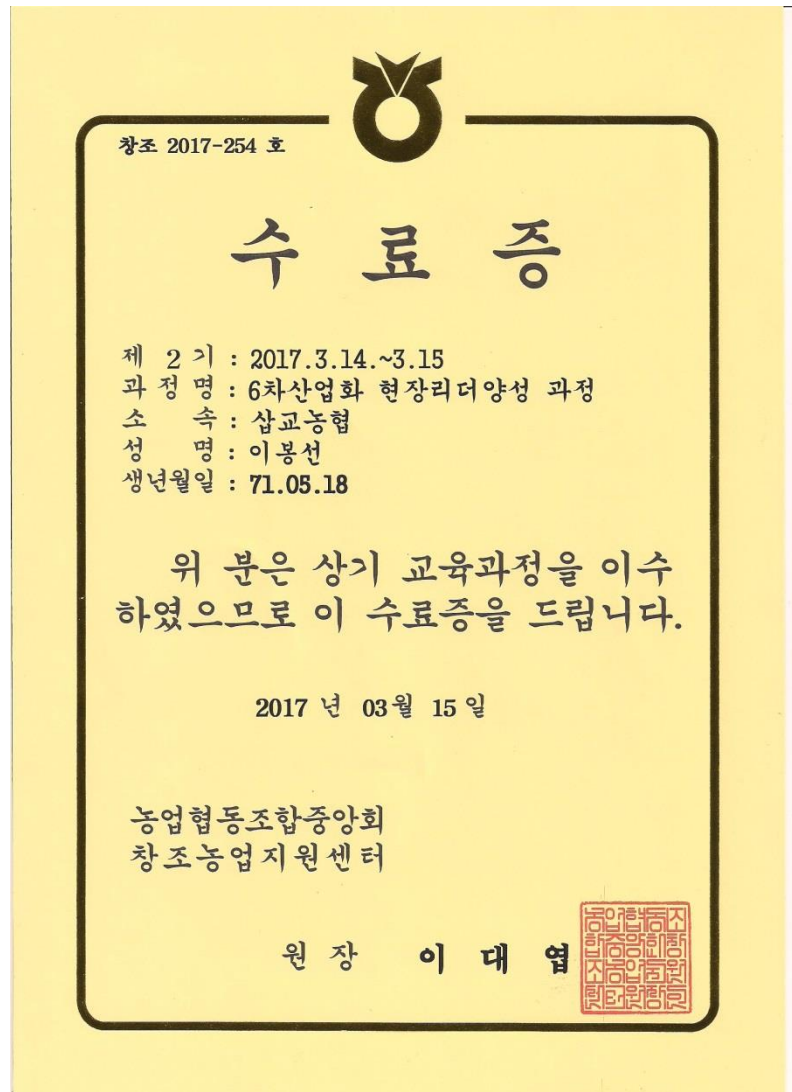 창조 2017-254 호
수 료 증
제 2 기 : 2017.3.14.~3.15
과 정 명 : 6차산업화 현장리더양성 과정
소 속 : 삽교농협
성 명 : 이봉선
생년월일 : 71.05.18
위 분은 상기 교육과정을 이수
하였으므로 이 수료증을 드립니다.
2017 년 03월 15 일
농업협동조합중앙회
창조농업지원센터
원 장 이 대 엽